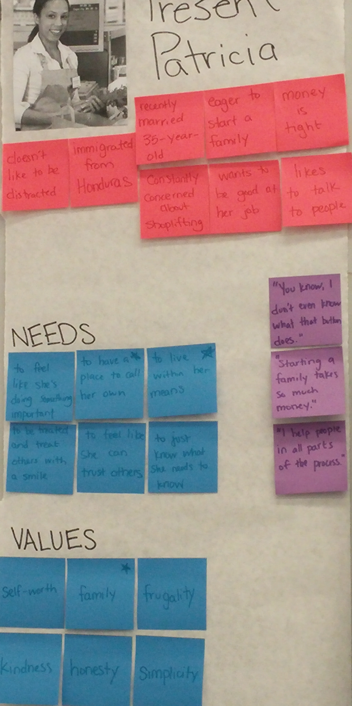 Present
Patricia
recently
married
35-year-
old
eager to
start a
family
money
is
tight
doesn't
like to be
distracted
immigrated
from
Honduras
Constantly
concerned
about
Shoplifting
wants to
be good at
her job
likes
to talk
to people
"You know, I
don't even know
what that button
does."
"Starting a
family takes
so much
money."
"I help people
in all parts
of the process."
NEEDS
to feel
like she's
doing something
important
to have a
place to call
her own
to live
within her
means
to be treated
and treat
others with
a smile
to feel like
she can
trust others
to just
know what
she needs to
know
VALUES
Self-worth
family
frugality
kindness
honesty
Simplicity